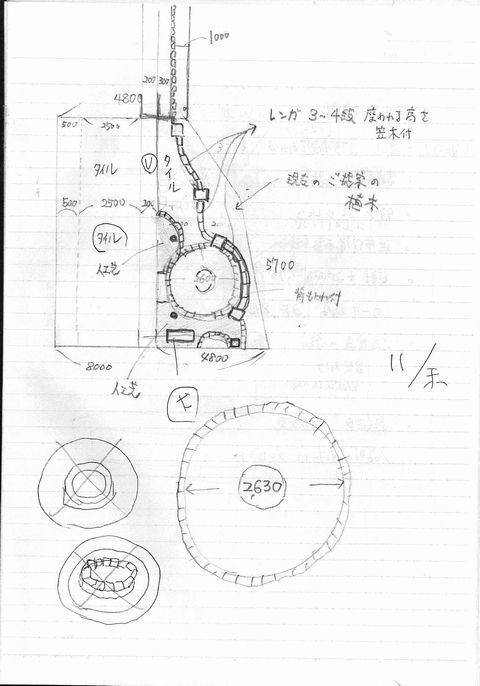 1000
200 300
4800
レンガ 3～4段 座われる高さ
笠木付
500 2500
タイル
タイル
現在のご提案の
植木
500 2500 200
タイル
人工芝
5700
背もたれ付
8000
人工芝
4800
11/末
2630